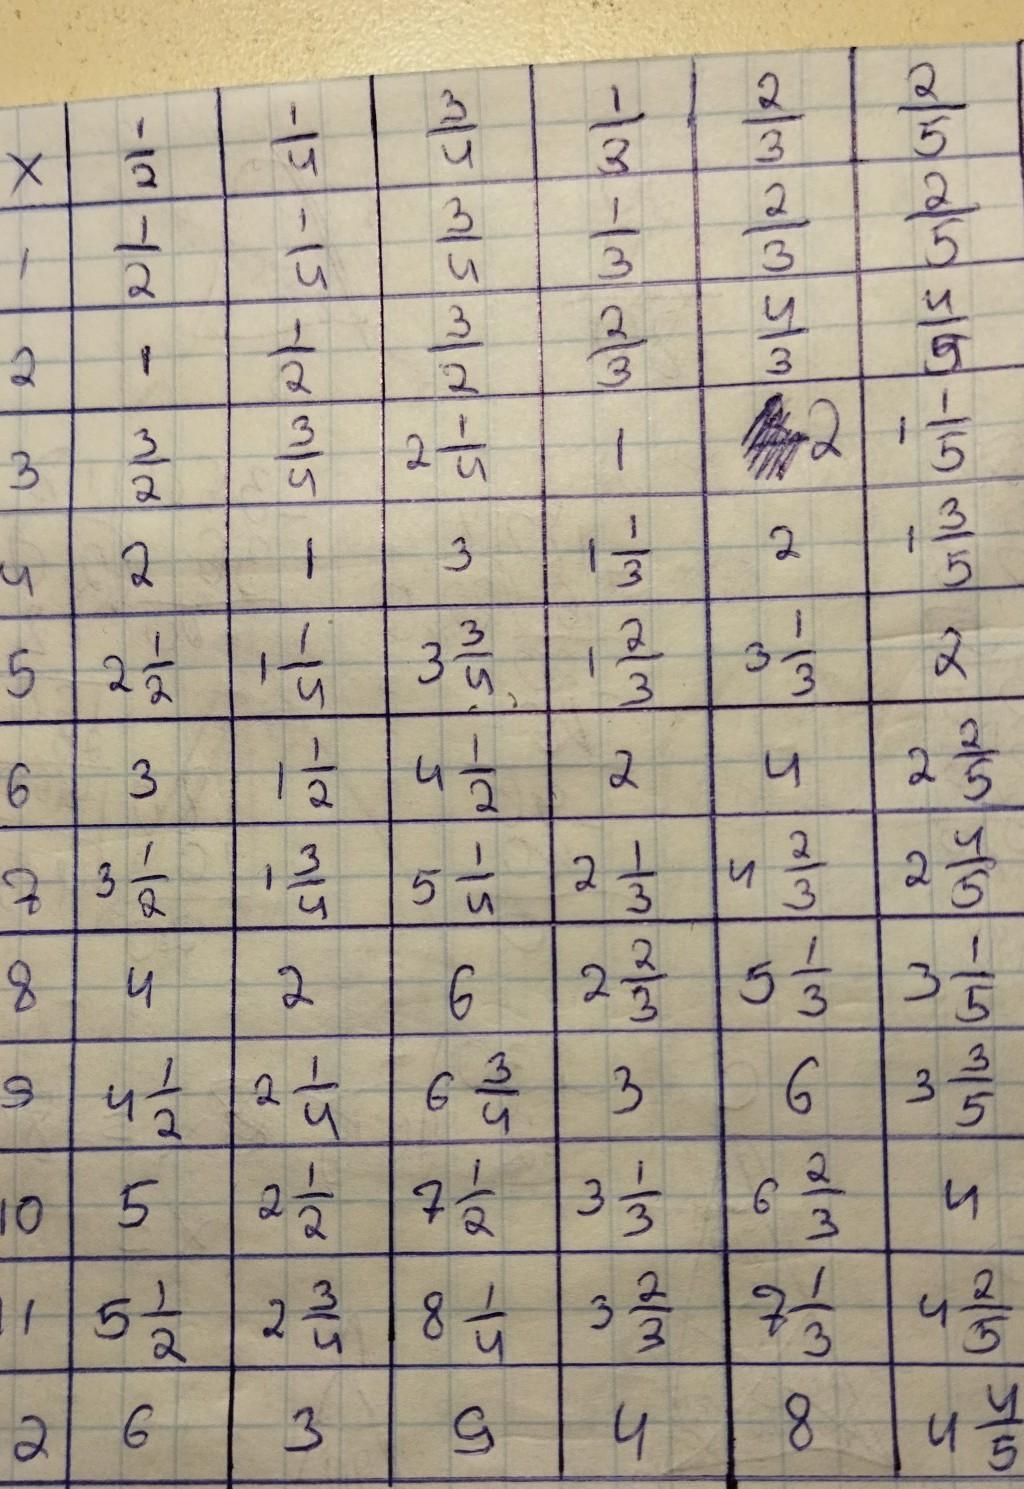 x 1/2 1/4 3/4 1/3 2/3 2/5
1 1/2 1/4 3/4 1/3 2/3 2/5
2 1 1/2 3/2 2/3 4/3 4/5
3 3/2 3/4 2 1/4 1 2 1 1/5
4 2 1 3 1 1/3 2 1 3/5
5 2 1/2 1 1/4 3 3/4 1 2/3 3 1/3 2
6 3 1 1/2 4 1/2 2 4 2 2/5
7 3 1/2 1 3/4 5 1/4 2 1/3 4 2/3 2 4/5
8 4 2 6 2 2/3 5 1/3 3 1/5
9 4 1/2 2 1/4 6 3/4 3 6 3 3/5
10 5 2 1/2 7 1/2 3 1/3 6 2/3 4
11 5 1/2 2 3/4 8 1/4 3 2/3 7 1/3 4 2/5
2 6 3 9 4 8 4 4/5